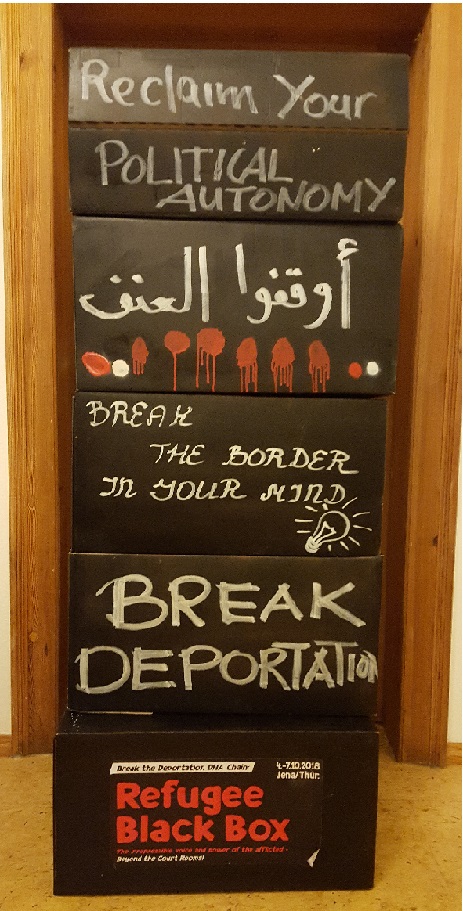 Reclaim Your
POLITICAL
AUTONOMY
أوقفوا العنف
BREAK
THE BORDER
IN YOUR MIND
BREAK
DEPORTATION
Break the Deportation. DNA Chain!
4.-7.10.2018
Jena/Thür.
Refugee
Black Box
The irrepressible voice and power of the afflicted -
Beyond the Court Rooms!